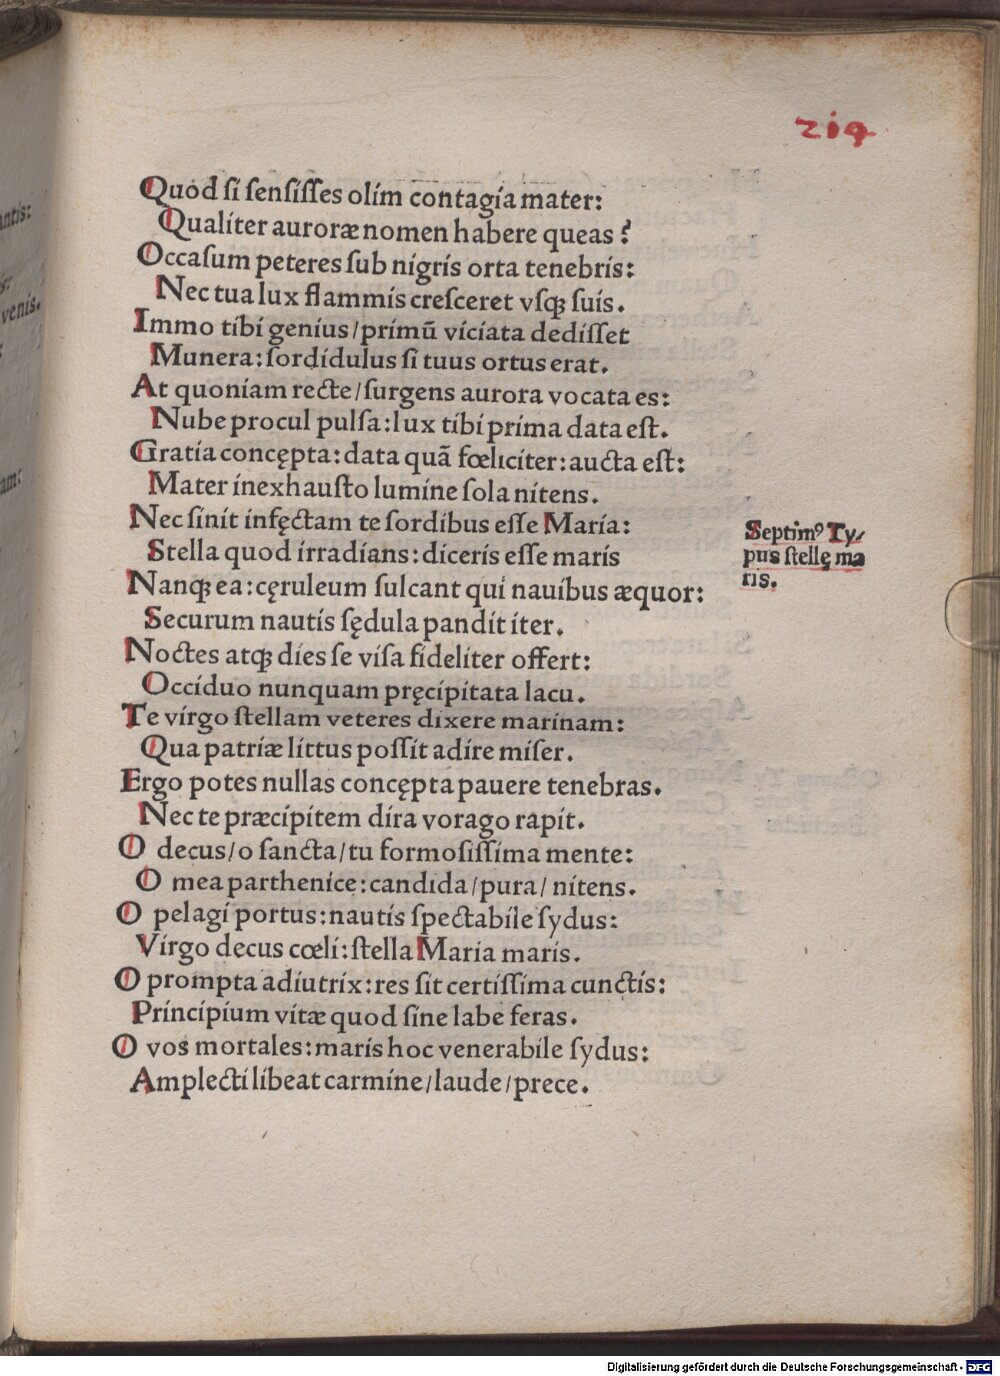 219
Quod si sensisses olim contagia mater:
Qualiter auroræ nomen habere queas?
Occasum peteres sub nigris orta tenebris:
Nec tua lux flammis cresceret vsqꝫ suis.
Immo tibi genius/primũ viciata dedisset
Munera:sordidulus si tuus ortus erat.
At quoniam recte/surgens aurora vocata es:
Nube procul pulsa:lux tibi prima data est.
Gratia concępta:data quã fœliciter:aucta est:
Mater inexhausto lumine sola nitens.
Nec sinit infęctam te sordibus esse Maria:
Stella quod irradians:diceris esse maris
Nanqꝫ ea:cęruleum sulcant qui nauibus æquor:
Securum nautis sędula pandit iter.
Noctes atqꝫ dies se visa fideliter offert:
Occiduo nunquam pręcipitata lacu.
Te virgo stellam veteres dixere marinam:
Qua patriæ littus possit adire miser.
Ergo potes nullas concępta pauere tenebras.
Nec te præcipitem dira vorago rapit.
O decus/o sancta/tu formosissima mente:
O mea parthenice:candida/pura/nitens.
O pelagi portus:nautis spectabile sydus:
Virgo decus cœli:stella Maria maris.
O prompta adiutrix:res sit certissima cunctis:
Principium vitæ quod sine labe feras.
O vos mortales:maris hoc venerabile sydus:
Amplecti libeat carmine/laude/prece.
Septimꝰ Ty/
pus stellę ma
ris.
antis:
s:
venis.
am:
Digitalisierung gefördert durch die Deutsche Forschungsgemeinschaft - DFG